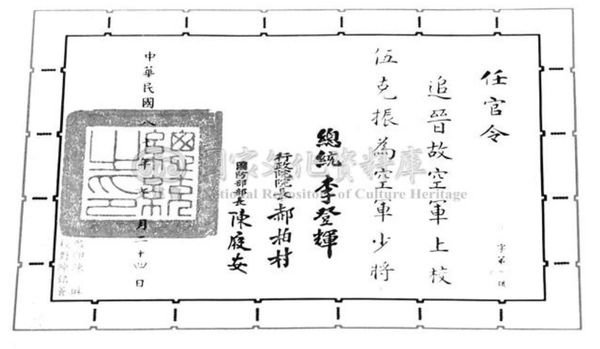 字第　號
任官令
追晉故空軍上校
伍克振為空軍少將
總統 李登輝
行政院院長 郝柏村
國防部部長 陳履安
中華民國八　年　月二十四日
國家文化資料庫
National Repository of Culture Heritage